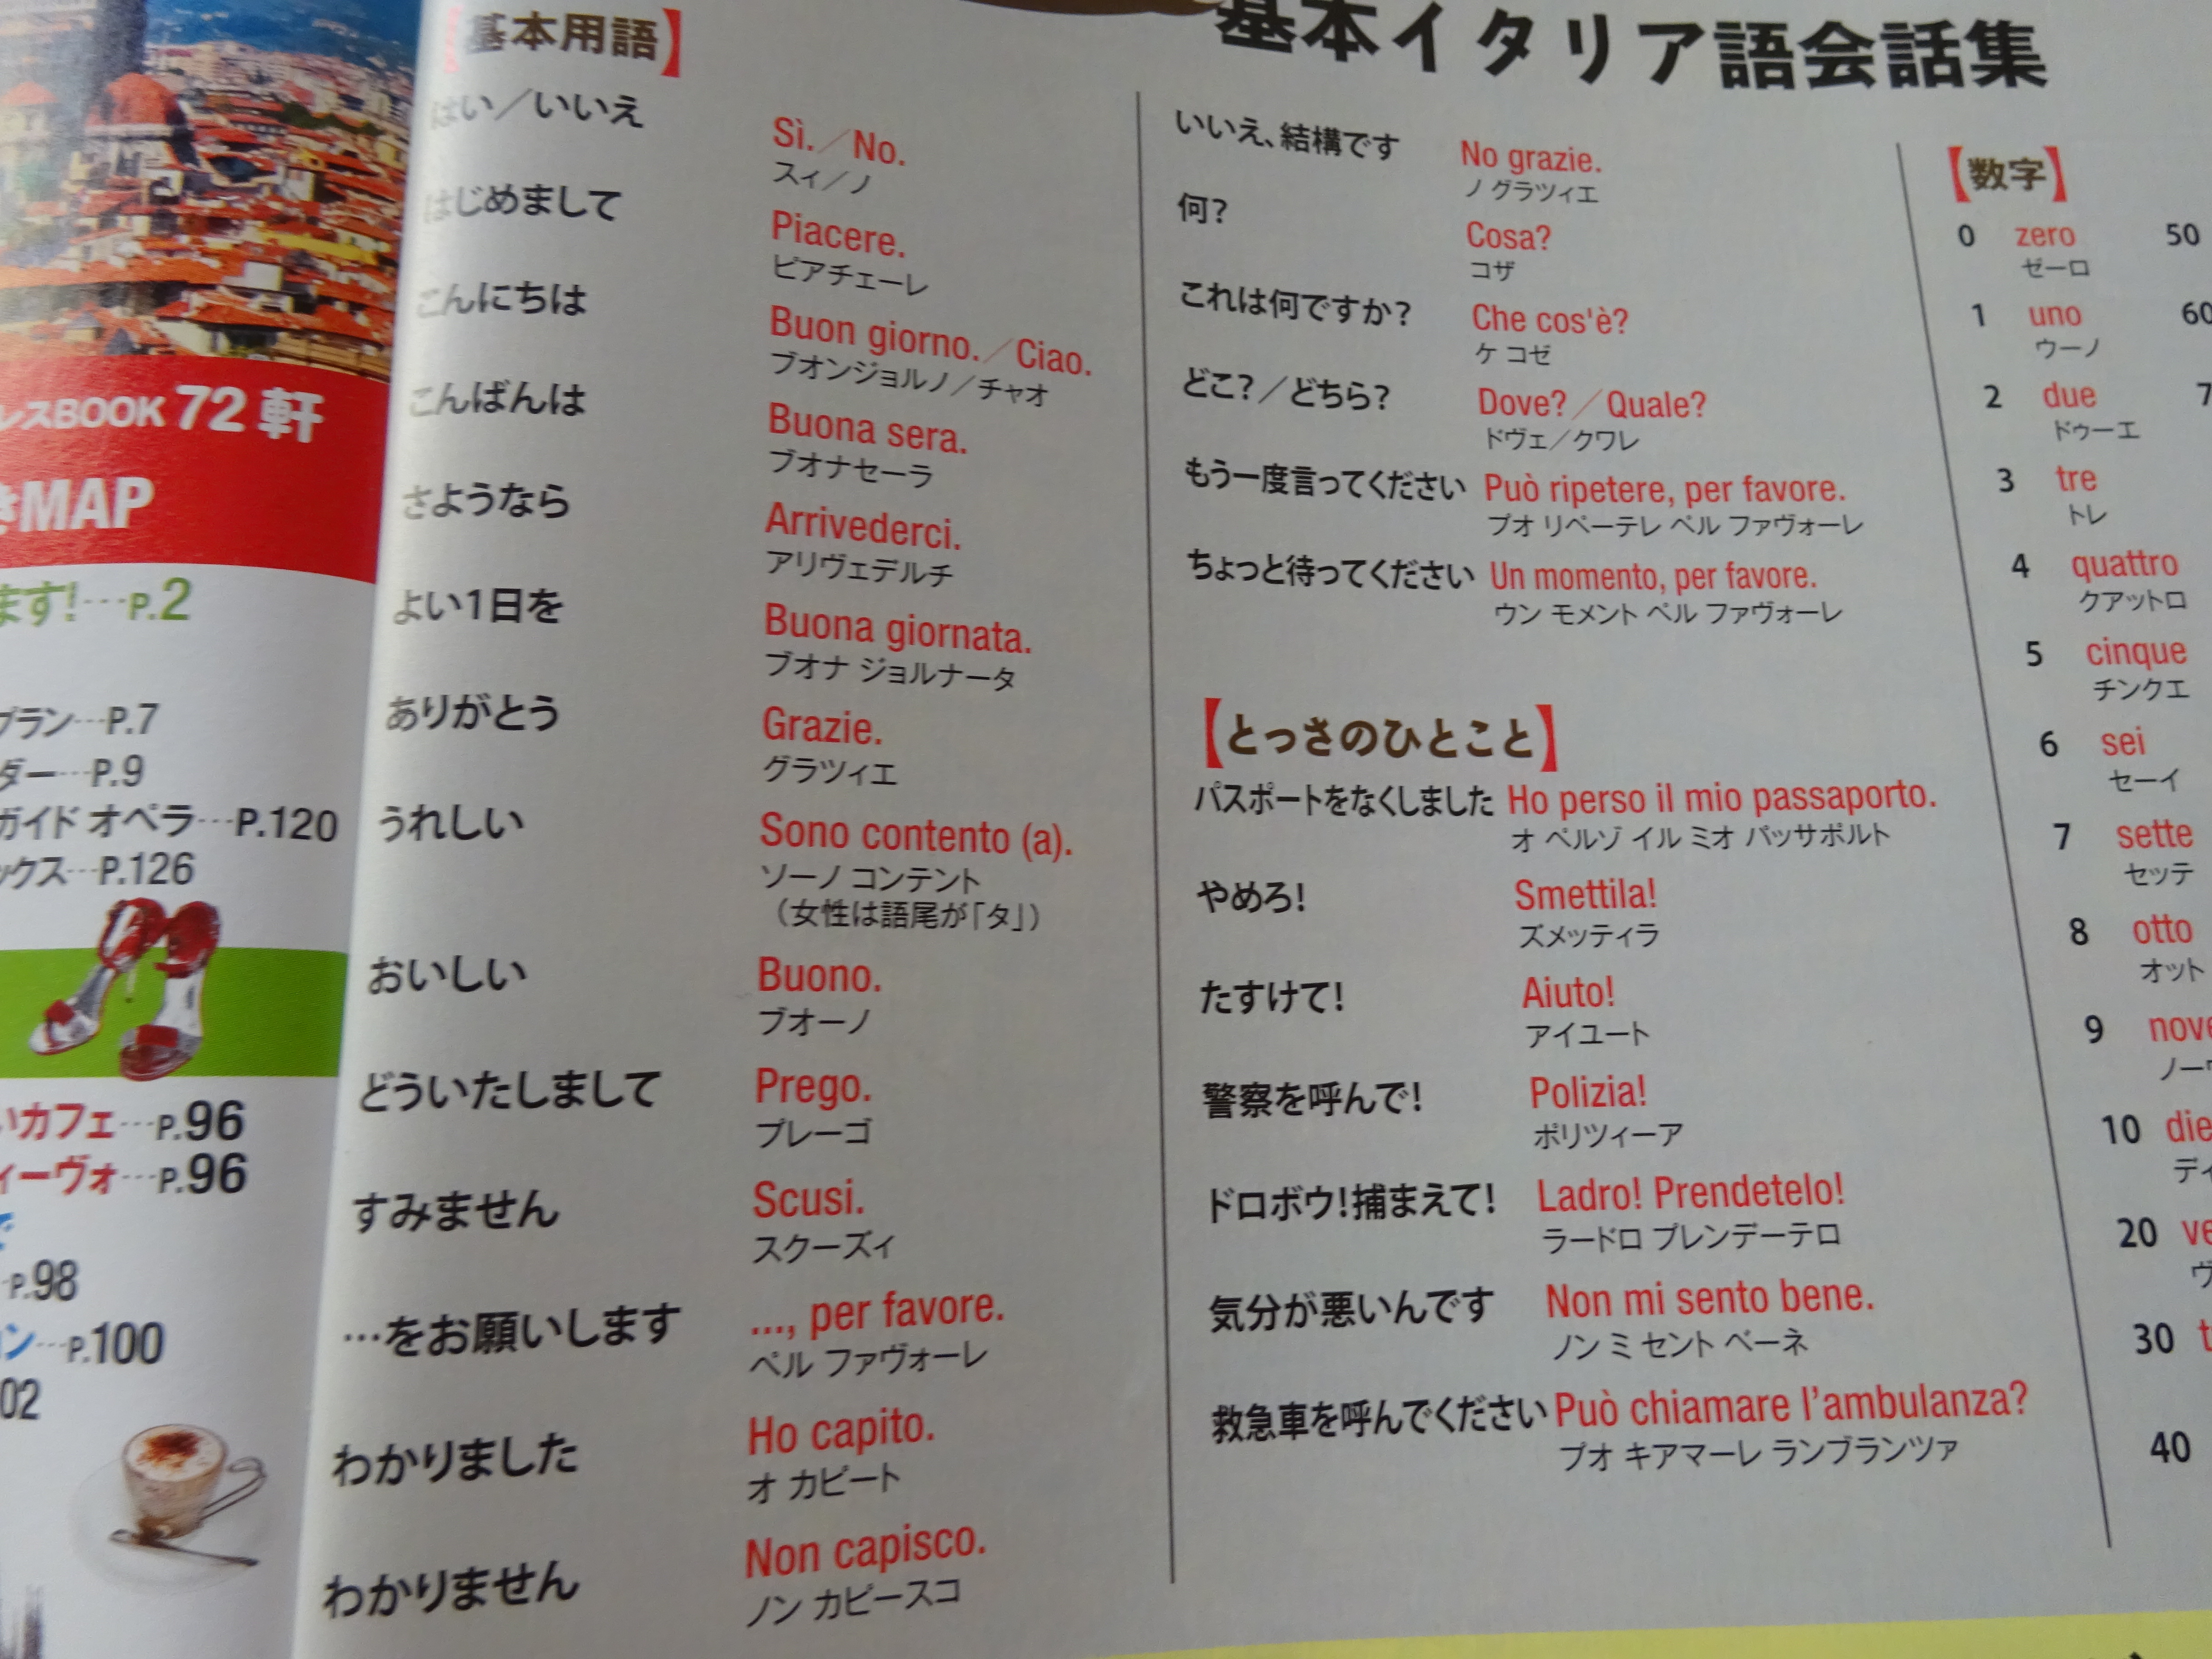 レスBOOK 72 軒
きMAP
ます!…P.2
プラン…P.7
ダー…P.9
ガイド オペラ…P.120
ックス…P.126
いカフェ…P.96
ィーヴォ…P.96
P.98
P.100
02
【基本用語】
はい／いいえ
Sì.／No.
スィ／ノ
はじめまして
Piacere.
ピアチェーレ
こんにちは
Buon giorno.／Ciao.
ブオンジョルノ／チャオ
こんばんは
Buona sera.
ブオナセーラ
さようなら
Arrivederci.
アリヴェデルチ
よい1日を
Buona giornata.
ブオナ ジョルナータ
ありがとう
Grazie.
グラツィエ
うれしい
Sono contento (a).
ソーノ コンテント
（女性は語尾が「タ」）
おいしい
Buono.
ブオーノ
どういたしまして
Prego.
プレーゴ
すみません
Scusi.
スクーズィ
…をお願いします
..., per favore.
ペル ファヴォーレ
わかりました
Ho capito.
オ カピート
わかりません
Non capisco.
ノン カピースコ
基本イタリア語会話集
いいえ、結構です
No grazie.
ノ グラツィエ
何？
Cosa?
コザ
これは何ですか？
Che cos'è?
ケ コゼ
どこ？／どちら？
Dove?／Quale?
ドヴェ／クワレ
もう一度言ってください
Può ripetere, per favore.
プオ リペーテレ ペル ファヴォーレ
ちょっと待ってください
Un momento, per favore.
ウン モメント ペル ファヴォーレ
【とっさのひとこと】
パスポートをなくしました
Ho perso il mio passaporto.
オ ペルソ イル ミオ パッサポルト
やめろ！
Smettila!
ズメッティラ
たすけて！
Aiuto!
アイユート
警察を呼んで！
Polizia!
ポリツィーア
ドロボウ！捕まえて！
Ladro! Prendetelo!
ラードロ プレンデーテロ
気分が悪いんです
Non mi sento bene.
ノン ミ セント ベーネ
救急車を呼んでください
Può chiamare l'ambulanza?
プオ キアマーレ ランブランツァ
【数字】
0 zero 50
ゼーロ
1 uno 60
ウーノ
2 due 7
ドゥーエ
3 tre
トレ
4 quattro
クアットロ
5 cinque
チンクエ
6 sei
セーイ
7 sette
セッテ
8 otto
オット
9 nove
ノー
10 die
ディ
20 ve
ヴ
30 t
40